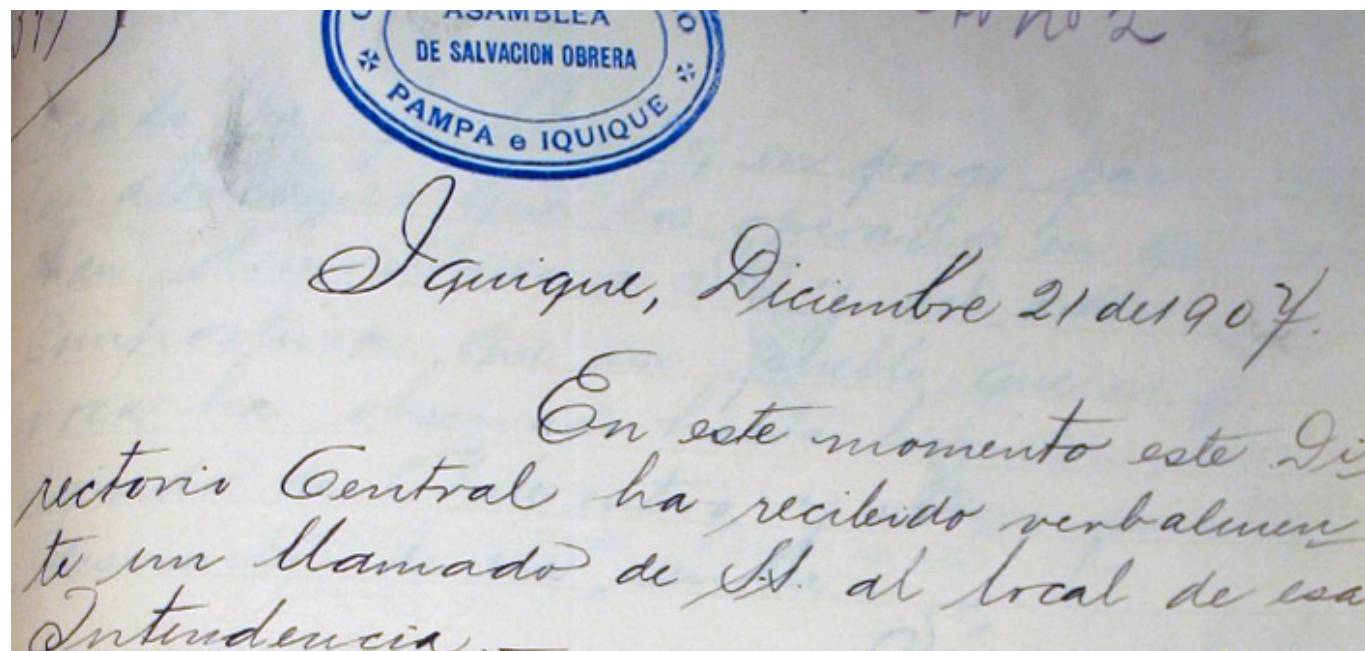 ASAMBLEA
DE SALVACION OBRERA
PAMPA e IQUIQUE
Iquique, Diciembre 21 de 1907.
En este momento este Di
rectorio Central ha recibido verbalmen
te un llamado de S.S. al local de esa
Intendencia.—